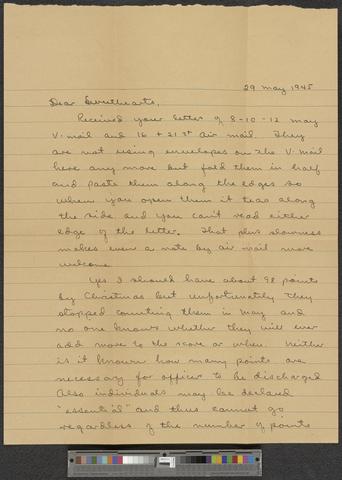 29 May 1945
Dear Sweethearts,
Received your letter of 8-10-12 May
V-mail and 16 + 21st Air mail. They
are not using envelopes on the V-mail
here any more but fold them in half
and paste them along the edges so
when you open them it tears along
the side and you can't read either
edge of the letter. That plus slowness
makes even a note by air mail more
welcome.
Yes I should have about 98 points
by Christmas but unfortunately they
stopped counting them in May and
no one knows whether they will ever
add more to the score or when. Neither
is it known how many points are
necessary for officer to be discharged
Also individuals may be declared
"essential" and thus cannot go
regardless of the number of points